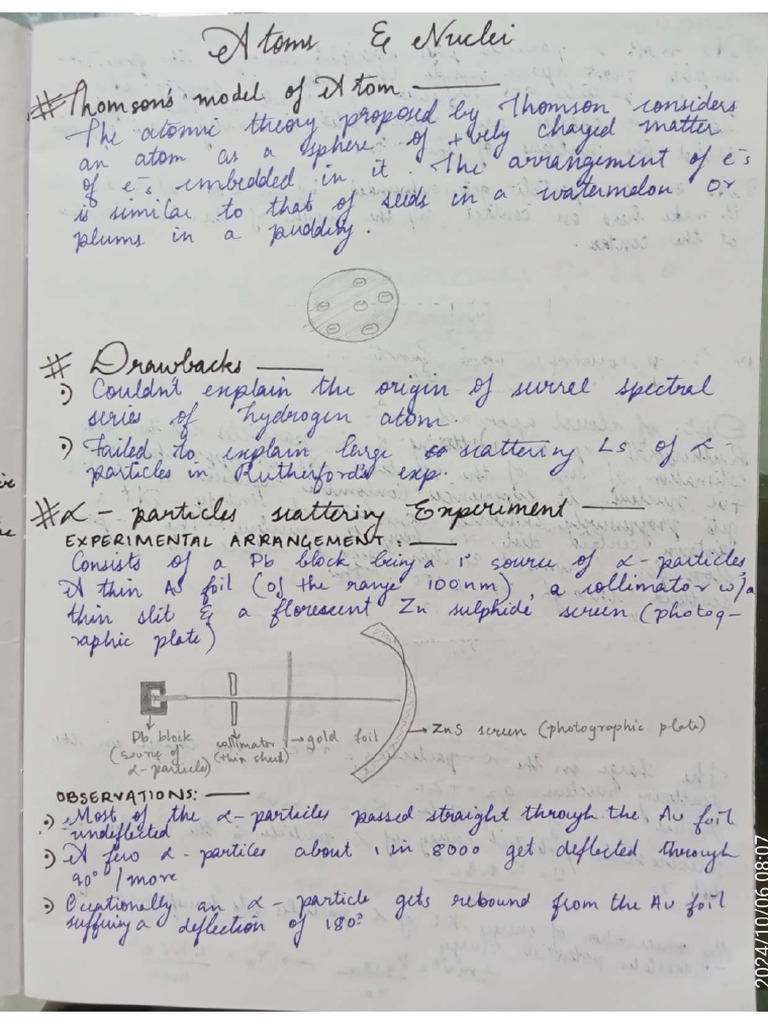 Atoms & Nuclei
# Thomson's model of Atom
The atomic theory proposed by Thomson considers
an atom as a sphere of +vely charged matter
of e⁻s embedded in it. The arrangement of e⁻s
is similar to that of seeds in a watermelon or
plums in a pudding.
# Drawbacks
Couldn't explain the origin of several spectral
series of hydrogen atom.
Failed to explain large scattering Ls of α-
particles in Rutherford's exp.
# α - particles scattering Experiment
EXPERIMENTAL ARRANGEMENT:
Consists of a Pb block being a 1° source of α-particles,
A thin Au foil (of the range 100nm), a collimator w/a
thin slit & a florescent Zn sulphide screen (photog-
raphic plate)
Pb block
(source of
α-particles)
collimator
(thin sheet)
→gold foil
→ZnS screen (photographic plate)
OBSERVATIONS:
Most of the α-particles passed straight through the Au foil
undeflected
A few α-particles about 1 in 8000 get deflected through
90° / more
Ocationally an α-particle gets rebound from the Au foil
suffering a deflection of 180°
2024/10/06 08:07